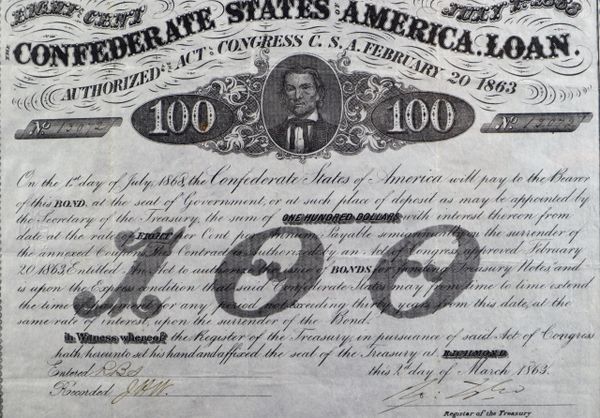 EIGHT PER CENT JULY 1st 1868
THE CONFEDERATE STATES OF AMERICA LOAN.
AUTHORIZED BY ACT OF CONGRESS C. S. A. FEBRUARY 20 1863
100 100
No. 13072 No. 13072
On the 1st day of July, 1868, the Confederate States of America will pay to the Bearer
of this BOND, at the seat of Government, or at such place of deposit as may be appointed by
the Secretary of the Treasury, the sum of ONE HUNDRED DOLLARS with interest thereon from
date at the rate of EIGHT Per Cent per annum Payable semiannually on the surrender of
the annexed Coupons. This Contract is authorized by an Act of Congress approved February
20 1863 Entitled An Act to authorize the issue of BONDS for funding Treasury Notes and
is upon the Express Condition that said Confederate States may from time to time extend
the time of payment for any period not exceeding thirty years from this date, at the
same rate of interest, upon the surrender of the Bond.
100
In Witness whereof the Register of the Treasury, in pursuance of said Act of Congress
hath hereunto set his hand and affixed the seal of the Treasury at RICHMOND
Entered this 2d day of March 1863.
Recorded J.H.W.
Register of the Treasury